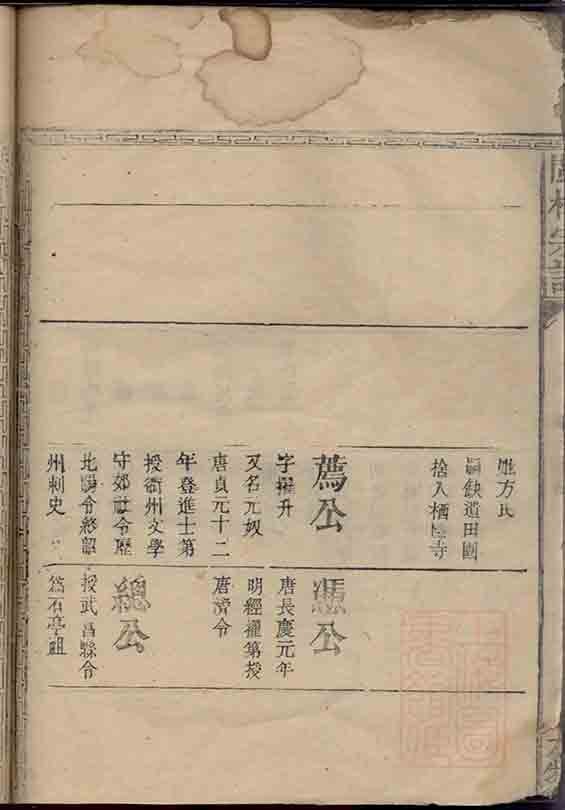 方氏
缺遺田園
捨入栖隱寺
薦公
字擢升
又名元奴
唐貞元十二
年登進士第
授衢州文學
守郊社令歷
陽令終韶
州刺史
憑公
唐長慶元年
明經擢第授
唐令
總公
授武昌縣令
為石亭祖